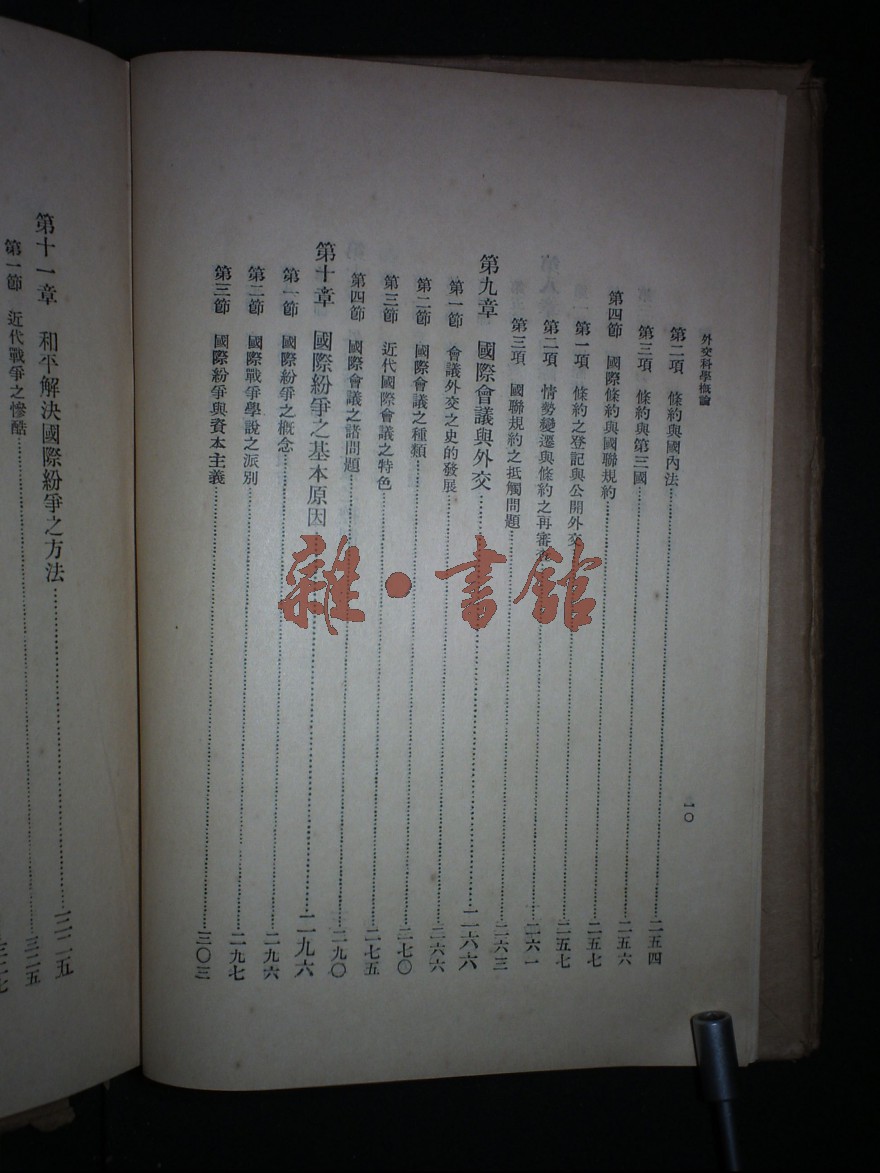 外交科學概論
一〇
第二項 條約與國內法 二五四
第三項 條約與第三國 二五六
第四節 國際條約與國聯規約 二五七
第一項 條約之登記與公開外交 二五七
第二項 情勢變遷與條約之再審查 二六一
第三項 國聯規約之抵觸問題 二六三
第九章 國際會議與外交 二六六
第一節 會議外交之史的發展 二六六
第二節 國際會議之種類 二七〇
第三節 近代國際會議之特色 二七五
第四節 國際會議之諸問題 二九〇
第十章 國際紛爭之基本原因 二九六
第一節 國際紛爭之概念 二九六
第二節 國際戰爭學說之派別 二九七
第三節 國際紛爭與資本主義 三〇三
第十一章 和平解決國際紛爭之方法 三二五
第一節 近代戰爭之慘酷 三二五
雜·書館